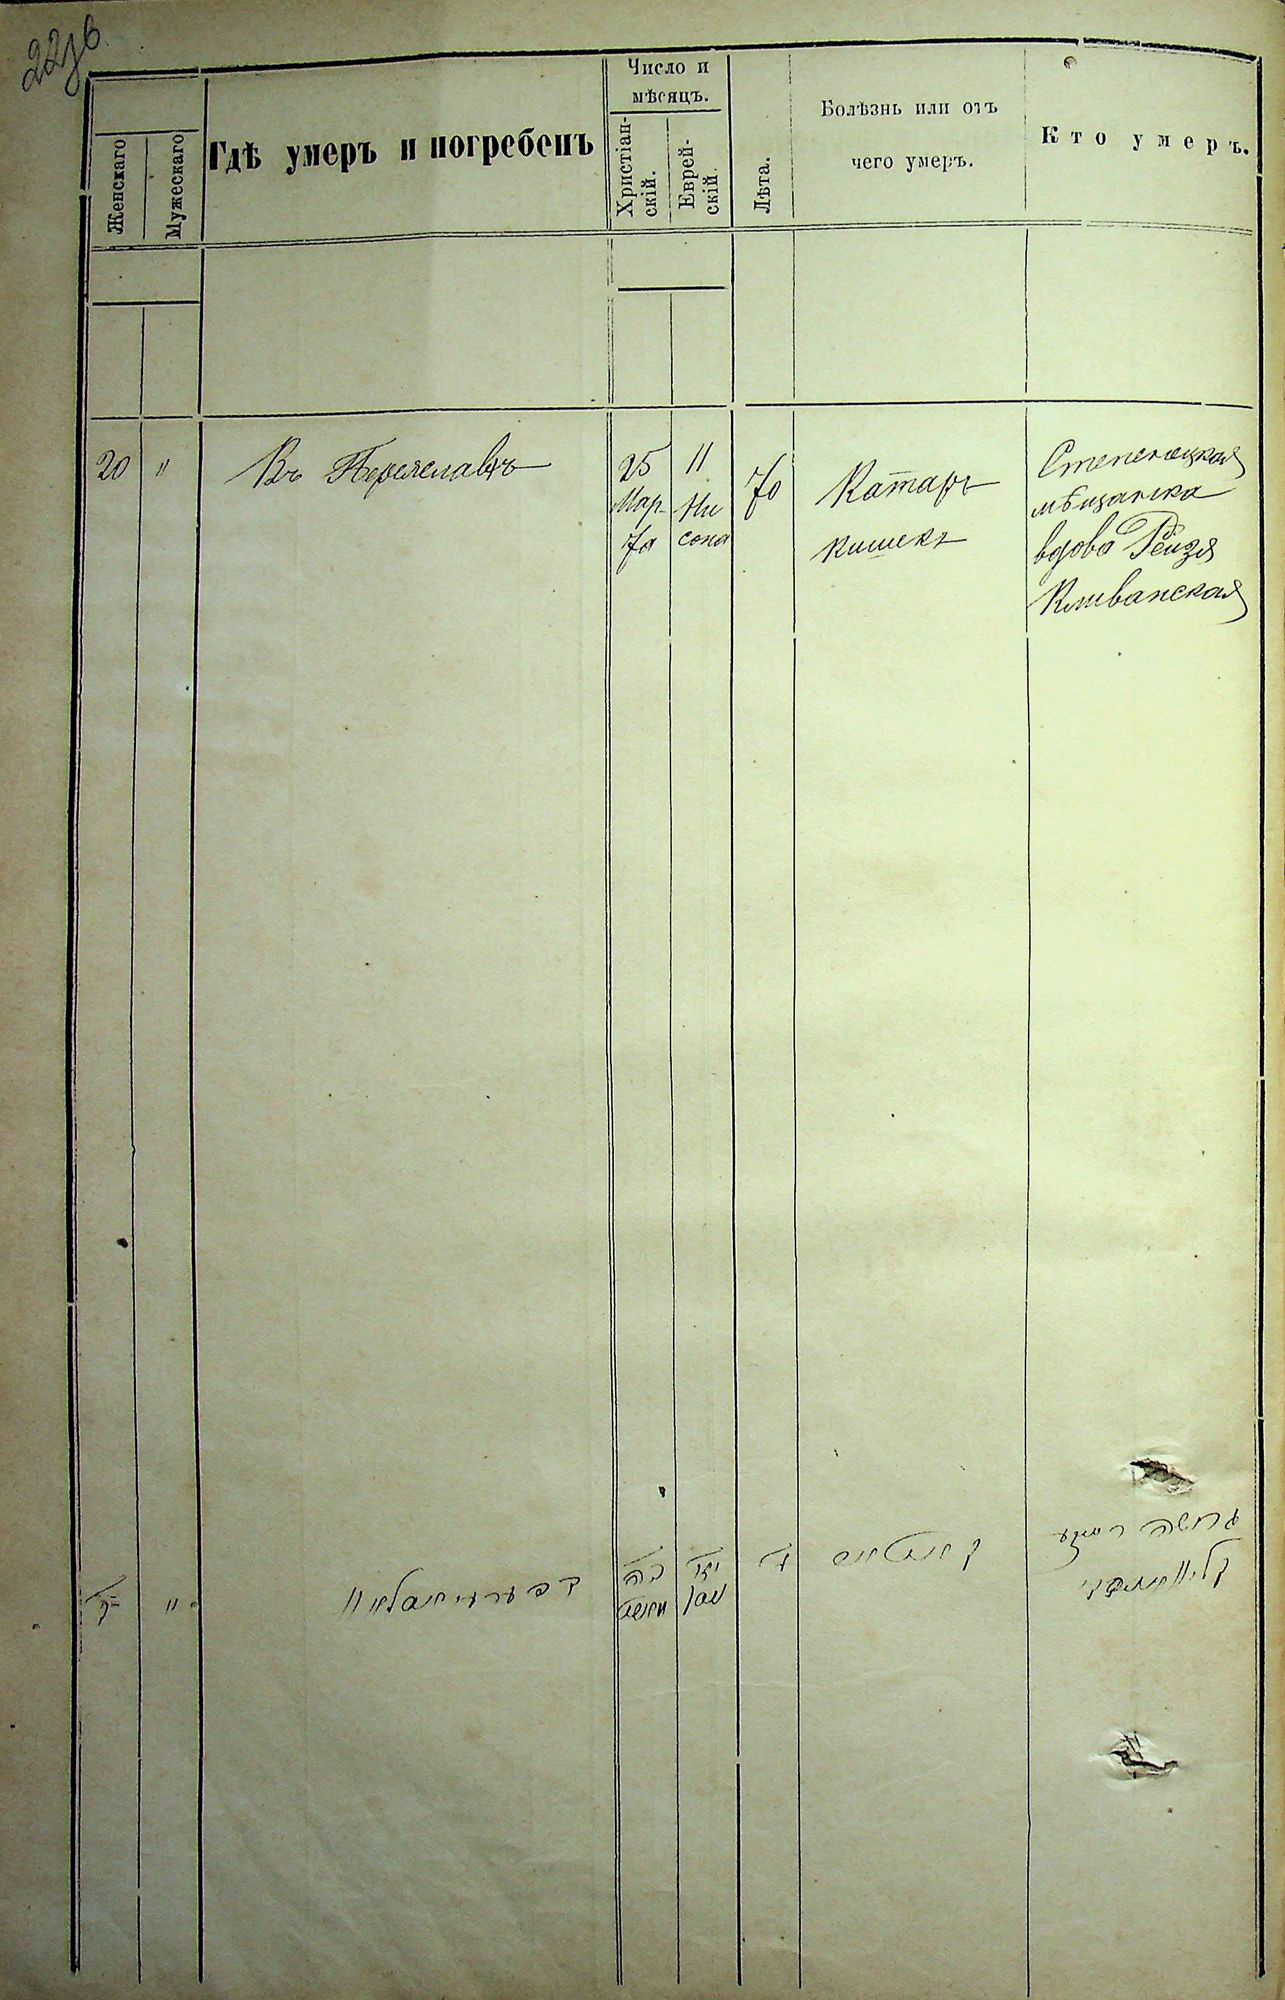 Женскаго
Мужескаго
Гдѣ умеръ и погребенъ
Число и
мѣсяцъ.
Христіан-
скій.
Еврей-
скій.
Лѣта.
Болѣзнь или отъ
чего умеръ.
Кто умеръ.
20
"
Въ Переяславѣ
25
Мар-
та
11
Ни
сона
70
Катаръ
кишекъ
Степенецкая
мѣщанка
вдова Рейзя
Кливанская
כ
"
כה
יא
ניסן
ע